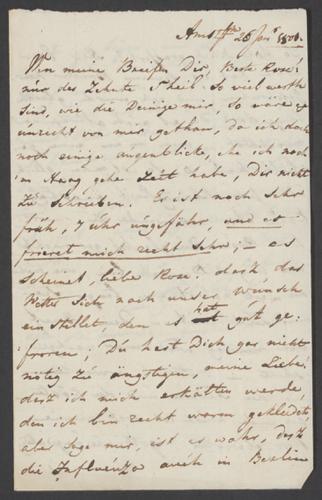 Amst. 28 Jan. 1801.
Wen meine Briefen Dir, Beste Rose!
nur der Zehnte Theil so viel werth
sind, wie die Deinige mir, so wäre es
unrecht von mir gethan, da ich doch
noch einige augenblicke, ehe ich nach
im Haag gehe Zeit habe, Dir nicht
zu schreiben. Es ist noch sehr
früh, 7 uhr ungefähr, und es
frieret mich recht sehr; – es
scheinet, liebe Rose! dash das
Wetter Sich nach unser wunsch
einstellet, den es hat gut ge:
froren; Du hast Dich gar nicht
nötig zu ängstigen, meine Liebe!
dash ich mich erkälten werde,
den ich bin recht warm gekleidet;
aber sage mir, ist es wahr, dash
die Influenza auch in Berlin